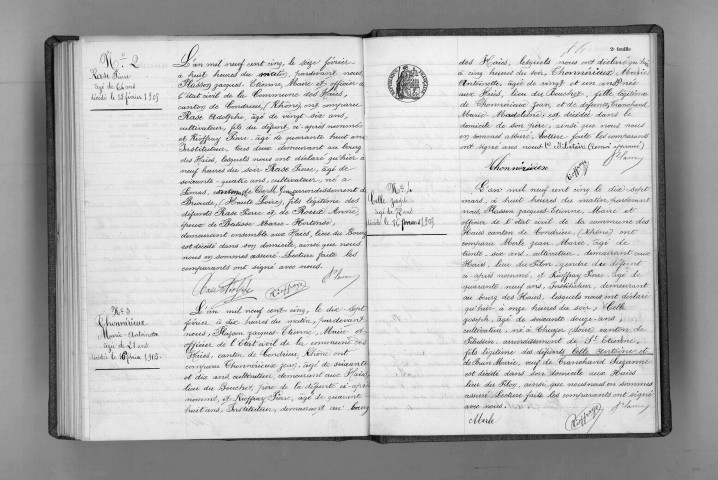 N° 2
Rase Pierre
âgé de 64 ans
décédé le 15 février 1905
L'an mil neuf cent cinq, le seize février
à huit heures du matin, pardevant nous
Plasson Jacques Etienne, Maire et officier de
l'état civil de la Commune des Haies,
canton de Condrieu, (Rhône) ont comparu
Rase Adolphe, âgé de vingt six ans,
cultivateur, fils du défunt ci-après nommé
et Rioffray Pierre, âgé de quarante huit ans
Instituteur, tous deux demeurant au bourg
des Haies, lesquels nous ont déclaré qu'hier à
neuf heures du soir Rase Pierre, âgé de
soixante-quatre ans, cultivateur, né à
arrondissement de
Brioude, (Haute Loire), fils légitime des
défunts Rase Pierre et de Annie,
époux de Marie Hortense,
demeurant ensemble aux Haies, lieu du Bourg
est décédé dans son domicile, ainsi que nous
nous en sommes assuré. Lecture faite les
comparants ont signé avec nous.
Rioffray
N° 3
Thomnérieux
Marie-Antoinette
âgée de 21 ans
décédée le 16 février 1905
L'an mil neuf cent cinq, le dix-sept
février à dix heures du matin, pardevant
nous, Plasson Jacques Etienne, Maire et
officier de l'état civil de la commune des
Haies, canton de Condrieu Rhône ont
comparu Thomnérieux Jean, âgé de soixante
et dix ans, cultivateur, demeurant aux Haies,
lieu du Bouchet, père de la défunte ci-après
nommée, et Rioffray Pierre, âgé de quarante
huit ans, Instituteur, demeurant au bourg
2e feuille
des Haies, lesquels nous ont déclaré qu'hier
à cinq heures du soir, Thomnérieux Marie
Antoinette, âgée de vingt et un ans née aux
Haies, lieu du Bouchet, fille légitime
de Thomnérieux Jean, et de défunte Tranchand
Marie Madeleine, est décédée dans le
domicile de son père, ainsi que nous nous
en sommes assuré. Lecture faite les comparants
ont signé avec nous
Thomnérieux
Rioffray
N° 4
Celle Joseph
âgé de 72 ans
décédé le 1905
L'an mil neuf cent cinq le dix sept
mars, à huit heures du matin, pardevant
nous Plasson Jacques Etienne, Maire et
officier de l'état civil de la commune des
Haies canton de Condrieu, (Rhône) ont
comparu Merle Jean Marie, âgé de
trente six ans, cultivateur, demeurant aux
Haies, lieu du Pilon, gendre du défunt
ci-après nommé, et Rioffray Pierre, âgé de
quarante neuf ans, Instituteur, demeurant
au bourg des Haies, lesquels nous ont déclaré
qu'hier à onze heures du soir, Celle
Joseph, âgé de soixante douze ans,
cultivateur, né à Chuyer Loire, canton de
Pélussin, arrondissement de St Etienne,
fils légitime des défunts Celle Antoine et
de Marie, veuf de Tranchand Suzanne
est décédé dans son domicile aux Haies
lieu du Pilon, ainsi que nous nous en sommes
assuré. Lecture faite les comparants ont signé
avec nous.
Merle
Rioffray